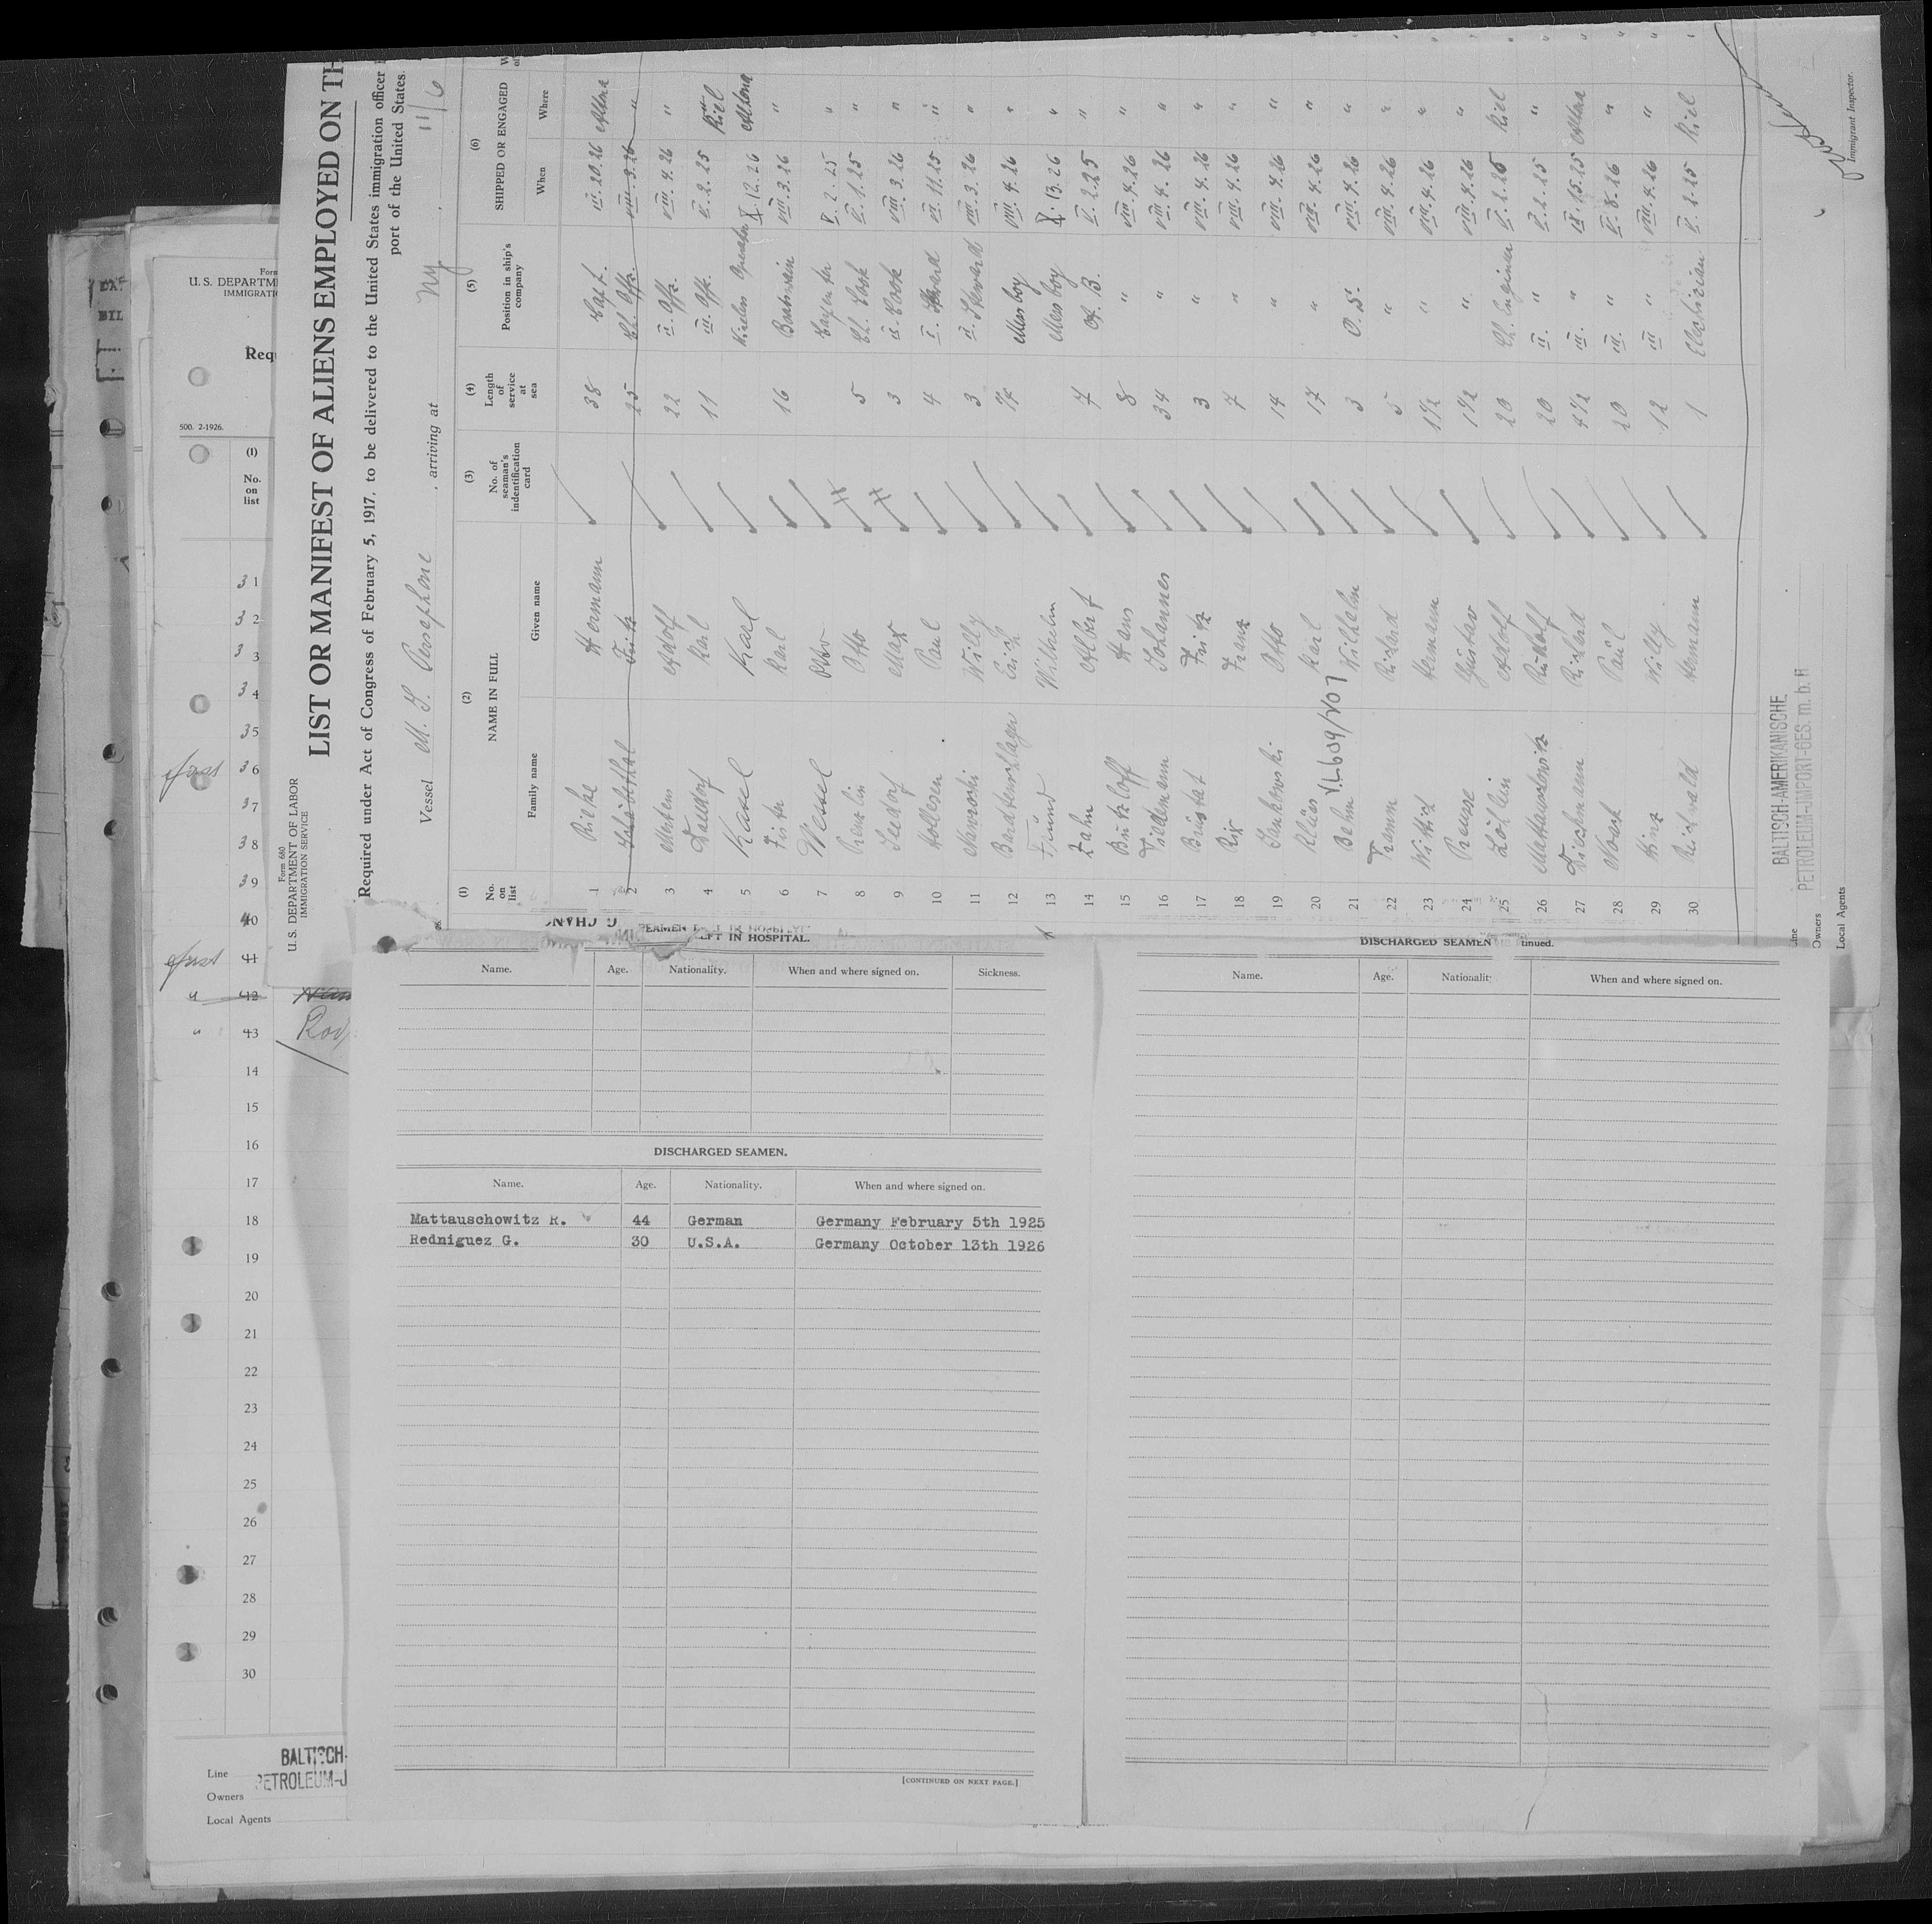 LIST OR MANIFEST OF ALIENS EMPLOYED ON TH
Required under Act of Congress of February 5, 1917, to be delivered to the United States immigration officer
port of the United States.
Vessel M. S. Persephone , arriving at NY. 11/6
Form 680
U. S. DEPARTMENT OF LABOR
IMMIGRATION SERVICE
(1) No. on list (2) NAME IN FULL Family name Given name (3) No. of seaman's indentification card (4) Length of service at sea (5) Position in ship's company (6) SHIPPED OR ENGAGED When Where
1 Hermann 38 Capt. III. 20. 26 Altona
2 Fritz 25 Ch. Offr. VIII. 3. 26 "
3 Mertens Adolf 22 II. Offr. VIII. 4. 26 "
4 Dalldorf Karl 11 III. Offr. V. 2. 25 Kiel
5 Kasel Karl Wireless Operator X. 12. 26 Altona
6 Karl 16 Boatswain VIII. 3. 26 "
7 Wessel Otto Carpenter V. 2. 25 "
8 Otto 5 Ch. Cook V. 1. 25 "
9 Seedorf Max 3 II. Cook VIII. 3. 26 "
10 Hollesen Paul 4 I. Steward VI. 11. 25 "
11 Nawroski Willy 3 II. Steward VIII. 3. 26 "
12 Erich Mess boy VIII. 4. 26 "
13 Wilhelm Mess boy X. 13. 26 "
14 Zahn Albert 7 A. B. V. 2. 25 "
15 Butzloff Hans 8 " VIII. 4. 26 "
16 Tiedemann Johannes 34 " VIII. 4. 26 "
17 Fritz 3 " VIII. 4. 26 "
18 Rix Franz 7 " VIII. 4. 26 "
19 Jankowski Otto 14 " VIII. 4. 26 "
20 Klüss Karl 17 " VIII. 4. 26 "
21 Behn Wilhelm 3 O. S. VIII. 4. 26 "
22 Richard 5 " VIII. 4. 26 "
23 Wittich Hermann 1 1/2 " VIII. 4. 26 "
24 Preusse Gustav 1 1/2 " VIII. 4. 26 "
25 Adolf 20 Ch. Engineer V. 2. 25 Kiel
26 Mattauschowitz Rudolf 20 II. " V. 2. 25 "
27 Dieckmann Richard 4 1/2 III. " IX. 15. 25 Altona
28 Noack Paul 20 III. " V. 8. 26 "
29 Hinz Willy 12 III " VIII. 4. 26 "
30 Reichwald Hermann 1 Electrician V. 2. 25 Kiel
BALTISCH-AMERIKANISCHE
PETROLEUM-IMPORT-GES. m. b. H
Line
Owners
Local Agents
Immigrant Inspector.
Form
U. S. DEPARTME
IMMIGRATIO
Requ
500. 2-1926.
(1)
No.
on
list
31
32
33
34
35
36
37
38
39
40
41
" 42
" 43 Rod
14
15
16
17
18
19
20
21
22
23
24
25
26
27
28
29
30
BALTISCH-
PETROLEUM-J
Line
Owners
Local Agents
LEFT IN HOSPITAL.
Name. Age. Nationality. When and where signed on. Sickness.
DISCHARGED SEAMEN.
Name. Age. Nationality. When and where signed on.
Mattauschowitz R. 44 German Germany February 5th 1925
Redniguez G. 30 U.S.A. Germany October 13th 1926
[CONTINUED ON NEXT PAGE.]
DISCHARGED SEAMEN tinued.
Name. Age. Nationality When and where signed on.